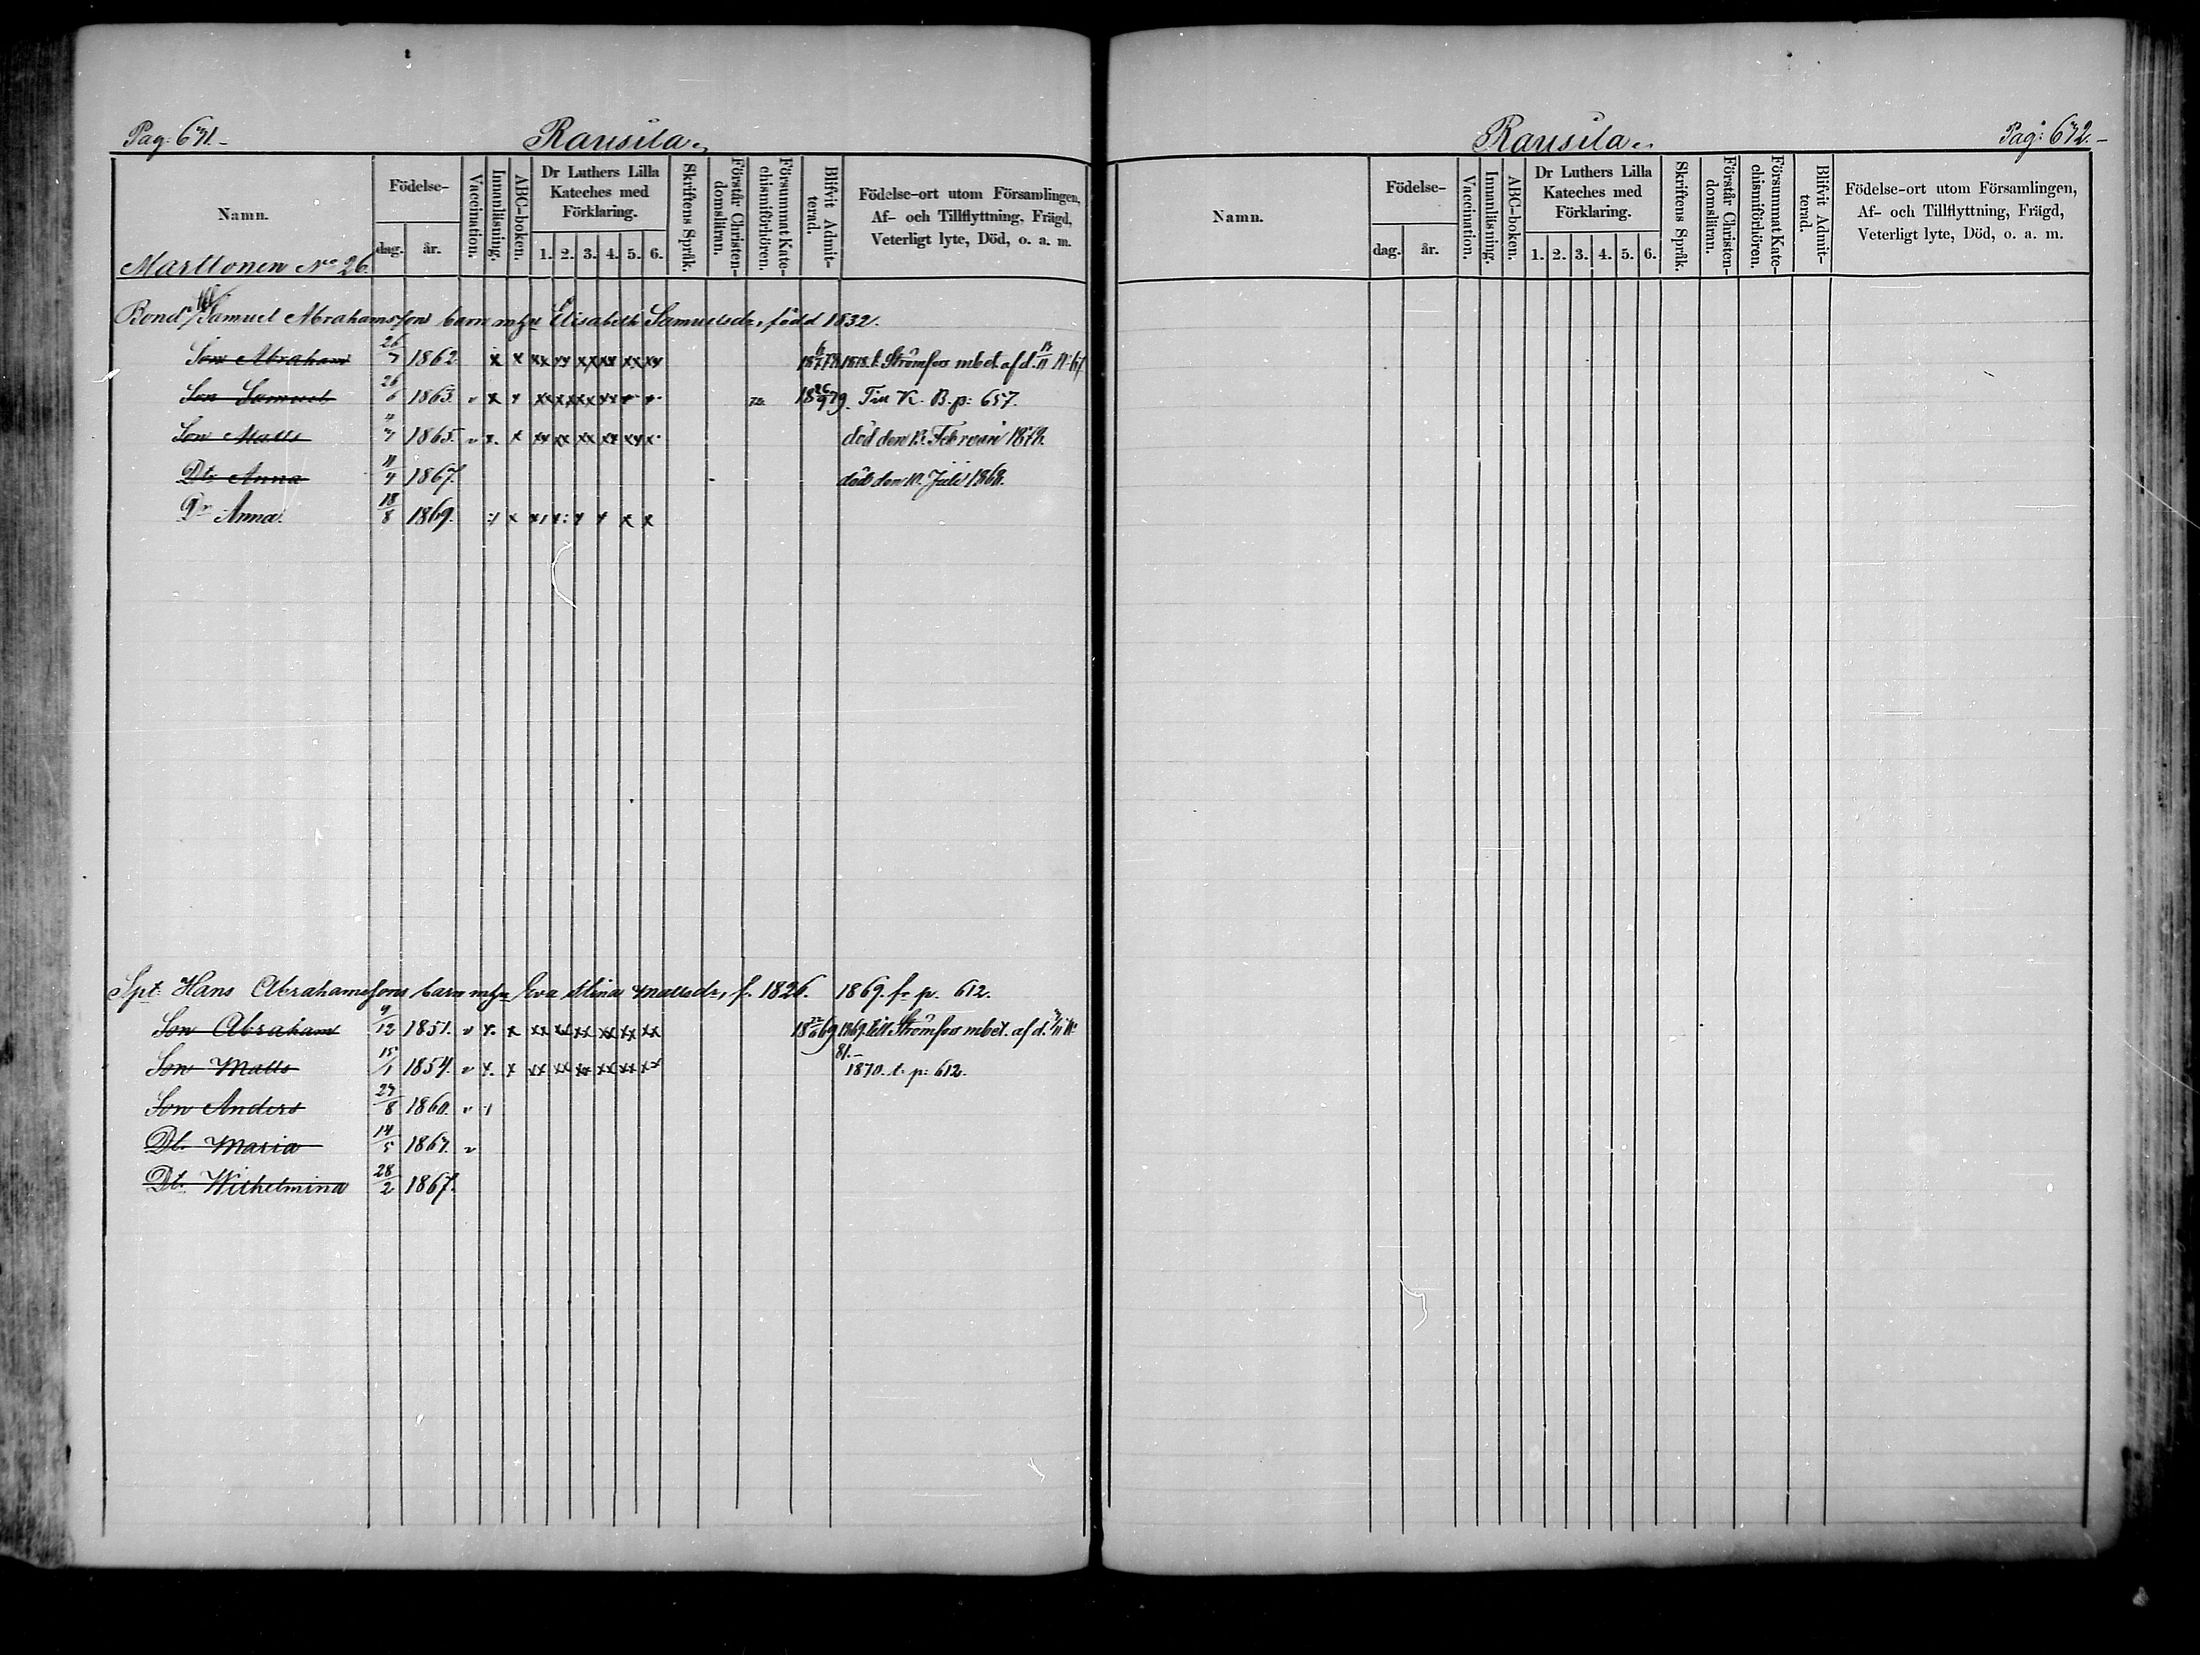 Pag: 671.
Rausila.
Namn.
Födelse-
dag. år.
Vaccination.
Innanläsning.
ABC-boken.
Dr Luthers Lilla Kateches med Förklaring.
1. 2. 3. 4. 5. 6.
Skriftens Språk.
Förstår Christendomsläran.
Försummat Katechismiförhören.
Blifvit Admitterad.
Födelse-ort utom Församlingen,
Af- och Tillflyttning, Frägd,
Veterligt lyte, Död, o. a. m.
Marttonen No 26.
Bond. Samuel Abrahamsson barn m hu Elisabeth Samuelsdr, född 1832.
Son Abraham 1862. x x xx xx xx xx xx xx Strömfors mbet. af d.
Son Samuel 26/6 1863. v x x 26/9 1879. p: 657.
Son Matts 1865. v x. x xx xx xx xx xx död den Februari
Dt. Anna 11/4 1867. död den Juli 1868.
Dr Anna. 18/8 1869. x x
Spt. Hans Abrahamssons barn m hu Eva Stina Mattsdr, f. 1826. 1869. fr p. 612.
Son Abraham 9/12 1851. v x. x xx xx xx xx xx xx 1869. till Strömfors mbet. af d.
81.-
Son Matts 15/1 1854. v x. x xx xx xx xx xx xx 1870. t. p: 612.
Son Anders 27/8 1860. v
Dt. Maria 14/5 v
Dt. Wilhelmina 28/2 1867.
Rausila.
Pag: 672.-
Namn.
Födelse-
dag. år.
Vaccination.
Innanläsning.
ABC-boken.
Dr Luthers Lilla Kateches med Förklaring.
1. 2. 3. 4. 5. 6.
Skriftens Språk.
Förstår Christendomsläran.
Försummat Katechismiförhören.
Blifvit Admitterad.
Födelse-ort utom Församlingen,
Af- och Tillflyttning, Frägd,
Veterligt lyte, Död, o. a. m.